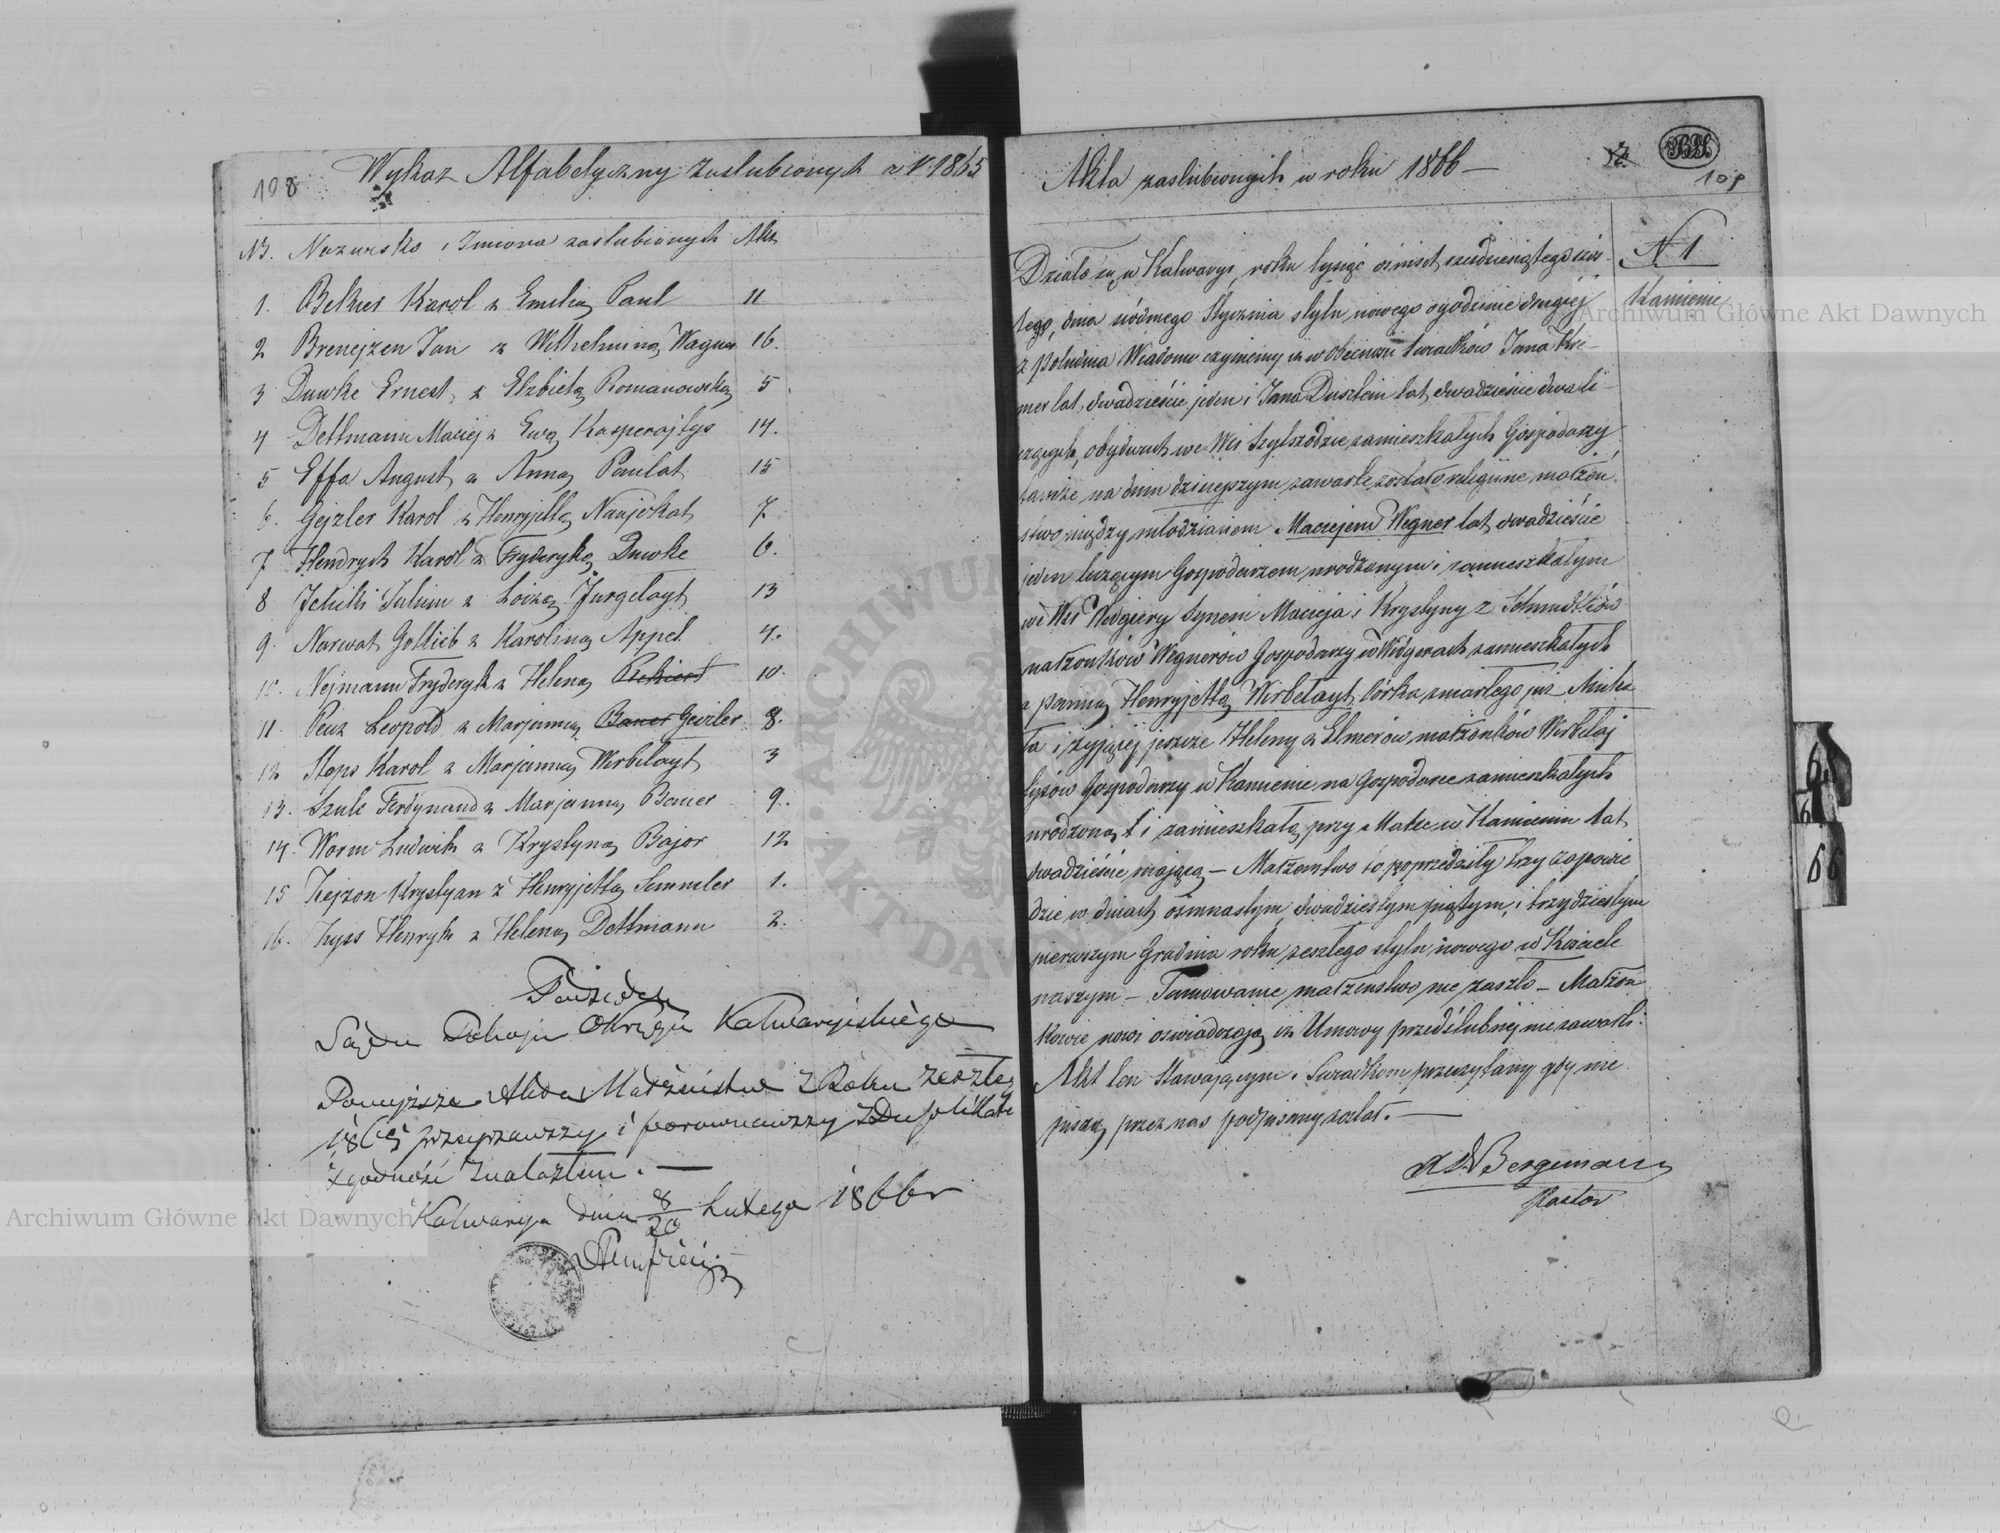 108
Wykaz Alfabetyczny zaslubionych z r. 1865
N. Nazwisko i Imiona zaslubionych Akt
1. Bekier Karol z Emilią Paul 11
2 Brenejzen Jan z Wilhelminą Wagner 16.
3 Duwke Ernest z Elzbietą Romanowską 5
4 Dettmann Maciej z Ewą Kasperajtys 14.
5 Effa August z Anną Paulat 15
6. Gejzler Karol z Henryjettą Naujokat 7
7 Hendrych Karol z Fryderyką Duwke 6.
8 Jelicki Julian z Loizą Jurgelayt 13
9. Narwat Gottlieb z Karoliną Appel 4.
10. Nejmann Fryderyk z Heleną 10.
11. Peuz Leopold z Marjanną Bauer Gevzler 8.
12 Steps Karol z Marjanną Wirbelayt 3
13. Szulc Ferdynand z Marjanną Bauer 9.
14. Worm Ludwik z Krystyną Bajor 12
15 Kejzon Krystyan z Henryjettą Semmler 1.
16. Lyss Henryk z Heleną Dettmann 2.
Podsędek
Sądu Pokoju Okręgu Kalwaryjskiego
Powyższe Akta Małżeństw z Roku zeszłego
1865 przejrzawszy i porównawszy z Duplikatem
zgodność znalazłem. —
Kalwarya dnia 8/20 Lutego 1866 r
Akta zaslubionych w roku 1866 —
109
N 1
Kamienie
Działo się w Kalwaryi, roku tysiąc ośmset sześdziesiątego szós-
tego, dnia siódmego Stycznia stylu nowego o godzinie drugiej
z południa Wiadomo czyniemy iż w obecności świadków Jana Kre-
mer lat dwadzieście jeden i Jana Dusztein lat dwadzieście dwa li-
czących, obydwuch we Wsi zamieszkałych Gospodarzy
tamże na dniu dzisiejszym zawarte zostało religijne małżeń-
stwo między młodzianem Maciejem Wegner lat dwadzieście
jeden liczącym Gospodarzem urodzonym i zamieszkałym
we Wsi Widgiery Synem Macieja i Krystyny z Schmidtów
małżonków Wegnerów Gospodarzy w Widgierach zamieszkałych
a panną Henryjettą Wirbelayt, córką zmarłego już Micha-
ła i żyjącej jeszcze Heleny z Elmerów małżonków Wirbelaj-
tysów Gospodarzy w Kamienie na Gospodarce zamieszkałych
urodzoną i zamieszkałą przy Matce w Kamieniu lat
dwadzieście mającą — Małżeństwo to poprzedziły trzy zapowie-
dzie w dniach ośmnastym, dwadziestym piątym, i trzydziestym
pierwszym Grudnia roku zeszłego stylu nowego w Kościele
naszym — Tamowanie małżeństwa nie zaszło — Małżon-
kowie nowi oświadczają iż Umowy przedślubnej nie zawarli.
Akt ten Stawającym i Świadkom przeczytany gdy nie
piszą, przez nas podpisany został. —
Bergemann
Pastor
6
6
66
Archiwum Główne Akt Dawnych
Archiwum Główne Akt Dawnych
ARCHIWUM
AKT DAWNYCH